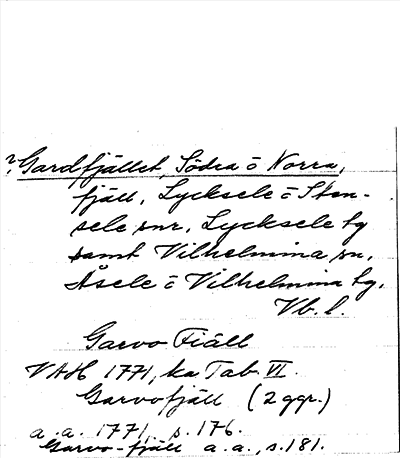 ?Gardfjället, Södra o Norra,
fjäll, Lycksele o Sten-
sele snr, Lycksele tg
samt Vilhelmina sn,
Åsele o Vilhelmina tg,
Vb. l.
Garvo Fiäll
VAH 1771, ka Tab. VI.
Garvofjäll (2 ggr.)
a. a. 1771, s. 176.
Garvo-fjäll a. a., s. 181.